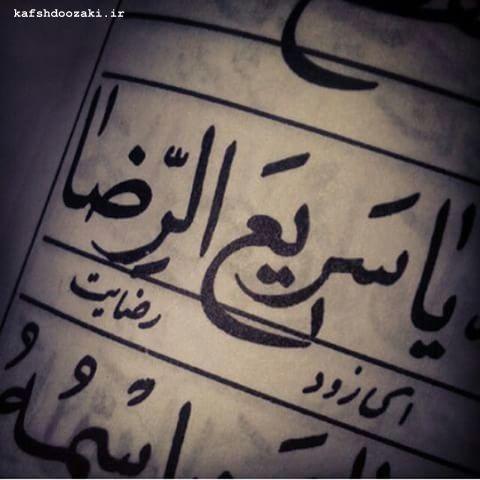 kafshdoozaki.ir
یا سَریعَ الرِّضا
ای زود رضایت
اسْمُهُ